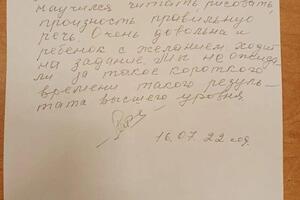 научился читать, рисовать,
произность правильную
речь. Очень довольна и
ребенок с желанием ходит
на задание. Мы не ожида-
ли за такое короткого
времени такого резуль-
тата высшего уровня
16.07.22 год.